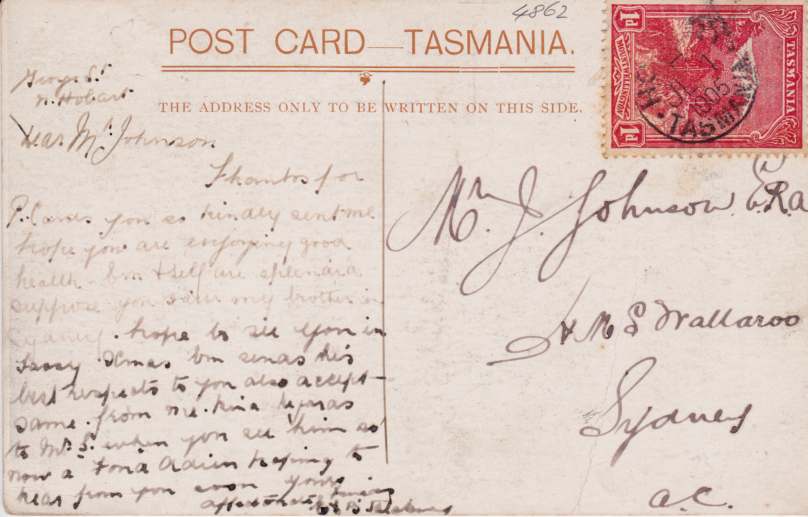 4862
POST CARD — TASMANIA.
THE ADDRESS ONLY TO BE WRITTEN ON THIS SIDE.
1d
1d
TASMANIA
TASMANIA
1905
George St
N. Hobart
Dear Mr. Johnson
Thanks for
P. Cards you so kindly sent me
hope you are enjoying good
health Em & self are splendid
suppose you saw my brother in
Sydney. hope to see you in
Tassy Xmas Em sends his
best respects to you also accept
same from me. kind
to Mr. S. when you see him so
now a Fond Adieu hoping to
hear from you soon yours
Mr. J. Johnson E.R.A
H M S Wallaroo
Sydney